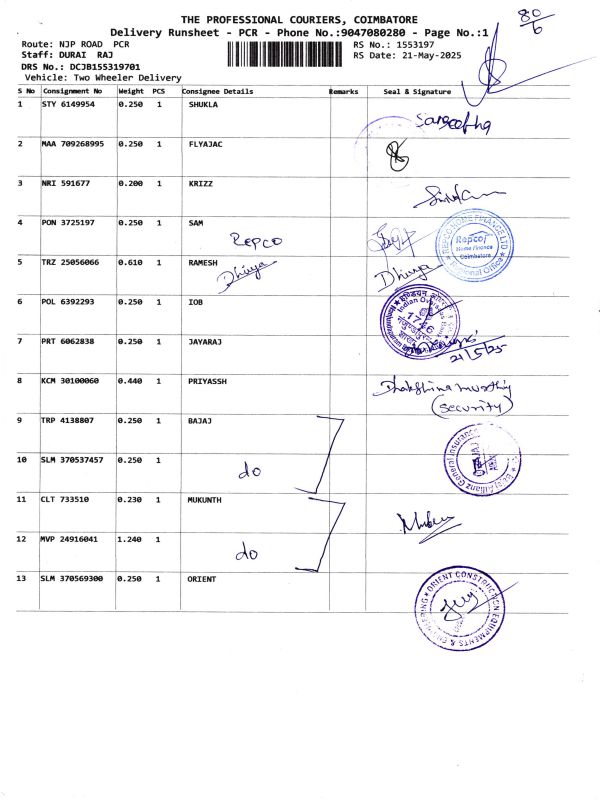 80
6
THE PROFESSIONAL COURIERS, COIMBATORE
Delivery Runsheet - PCR - Phone No.:9047080280 - Page No.:1
Route: NJP ROAD PCR
RS No.: 1553197
Staff: DURAI RAJ
RS Date: 21-May-2025
DRS No.: DCJB155319701
Vehicle: Two Wheeler Delivery
S No Consignment No Weight PCS Consignee Details Remarks Seal & Signature
1 STY 6149954 0.250 1 SHUKLA
Sangeetha
2 MAA 709268995 0.250 1 FLYAJAC
3 NRI 591677 0.200 1 KRIZZ
4 PON 3725197 0.250 1 SAM
REPCO
REPCO HOME FINANCE LTD
Repco
Home Finance
Coimbatore
Regional Office
5 TRZ 25056066 0.610 1 RAMESH
Dhivya Dhivya
6 POL 6392293 0.250 1 IOB
Indian Overseas Bank
1726
7 PRT 6062838 0.250 1 JAYARAJ
21/5/25
8 KCM 30100060 0.440 1 PRIYASSH
Dhakshina murthy
(security)
9 TRP 4138807 0.250 1 BAJAJ
Bajaj Allianz General Insurance
10 SLM 370537457 0.250 1
do
11 CLT 733510 0.230 1 MUKUNTH
12 MVP 24916041 1.240 1
do
13 SLM 370569300 0.250 1 ORIENT
ORIENT CONSTRUCTION EQUIPMENTS & ENGINEERING